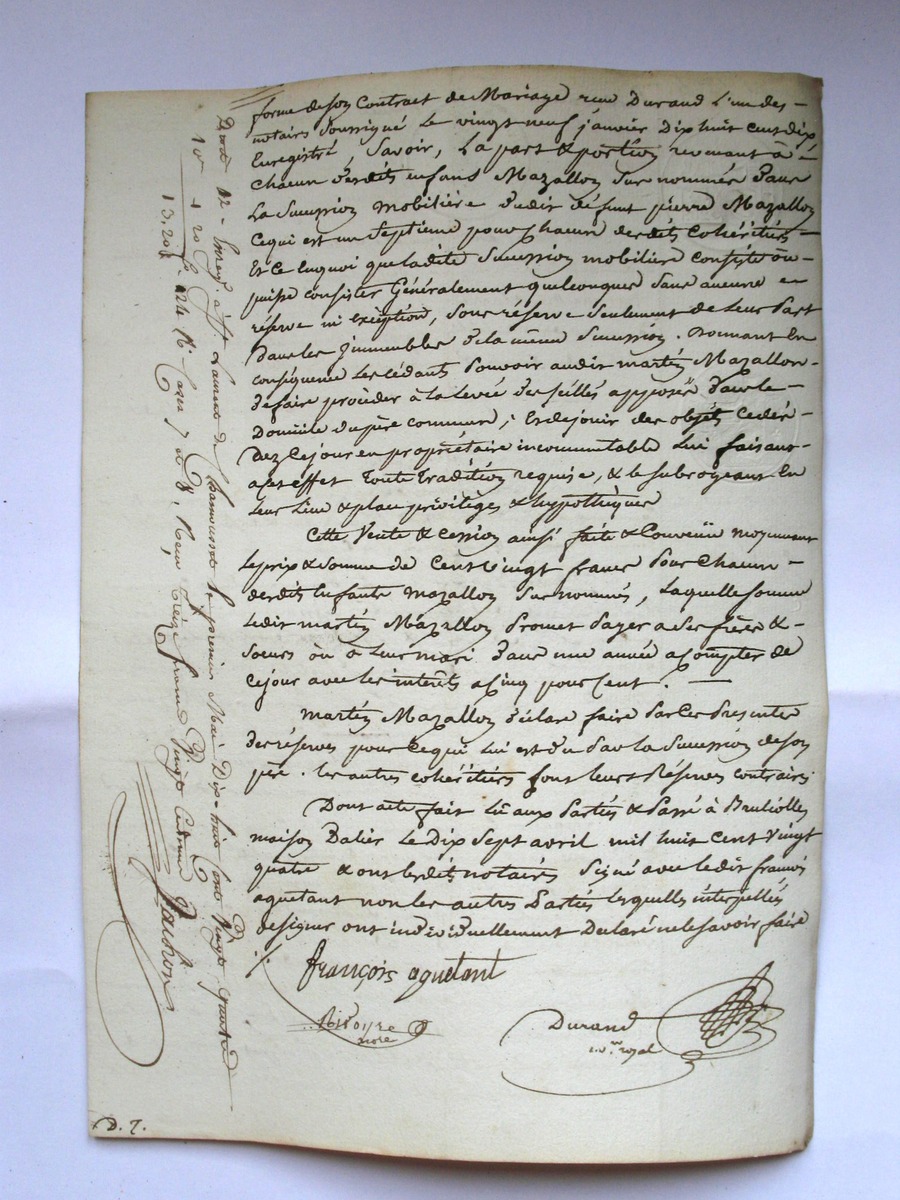 forme de son Contract de Mariage reçu Durand L'un des
notaires Soussigné Le vingt neuf janvier Dix huit cent dix
Enregistré, Savoir, La part & portion revenant à
chacun desdits enfans Mazallon sus nommés Dans
La Succession mobilière dudit défunt pierre Mazallon
Ce qui est un Septieme pour chacun desdits Cohéritiers
Et Ce Enquoi que ladite Succession mobiliere consiste ou
puisse consister Généralement quelconques Sans aucune
réserve ni exception, Sous réserve Seulement de Leur Part
Dans les Immeubles de la même Succession. Donnant En
conséquence Les Cédants Pouvoir audit martin Mazallon
de faire procéder à la Levée des scellés apposés Dans le
Domicile du père commun; Et de jouir des objets Cédés
Dez Ce jour en propriétaire incommutable Lui faisant
a cet effet Toute Tradition requise, & le subrogeant En
Leur Lieu & place privilèges & hypothèques
Cette Vente & cession ainsi faite & Convenüe moyennant
Le prix & Somme de Cent Vingt francs Pour Chacun
desdits Enfants Mazallon sus nommés, Laquelle somme
Ledit martin Mazallon Promet Payer a Ses frères &
Soeurs ou a Leur Mari Dans une année a Compter de
Ce jour avec les intérêts a Cinq pour Cent.
martin Mazallon déclare faire Par Ces Presentes
des réserves pour Ce qui Lui est Du Par La Succession de Son
père. les autres cohéritiers font leurs Réserves contraires
Dont acte fait Lu aux Parties & Passé à Brullioles
maison Dalin Le Dix Sept avril mil huit Cent Vingt
quatre & ont lesdits notaires Signé avec ledit françois
aguetant non les autres Parties Lesquelles interpellés
de signer ont individuellement Declaré ne le savoir faire
françois aguetant
Durand
n.re royal
D. T.
Enregé à St Laurent de Chamousset le premier Mai Dix huit Cent Vingt quatre
10
1 20
13.20
Reçu treize francs Vingt Centimes